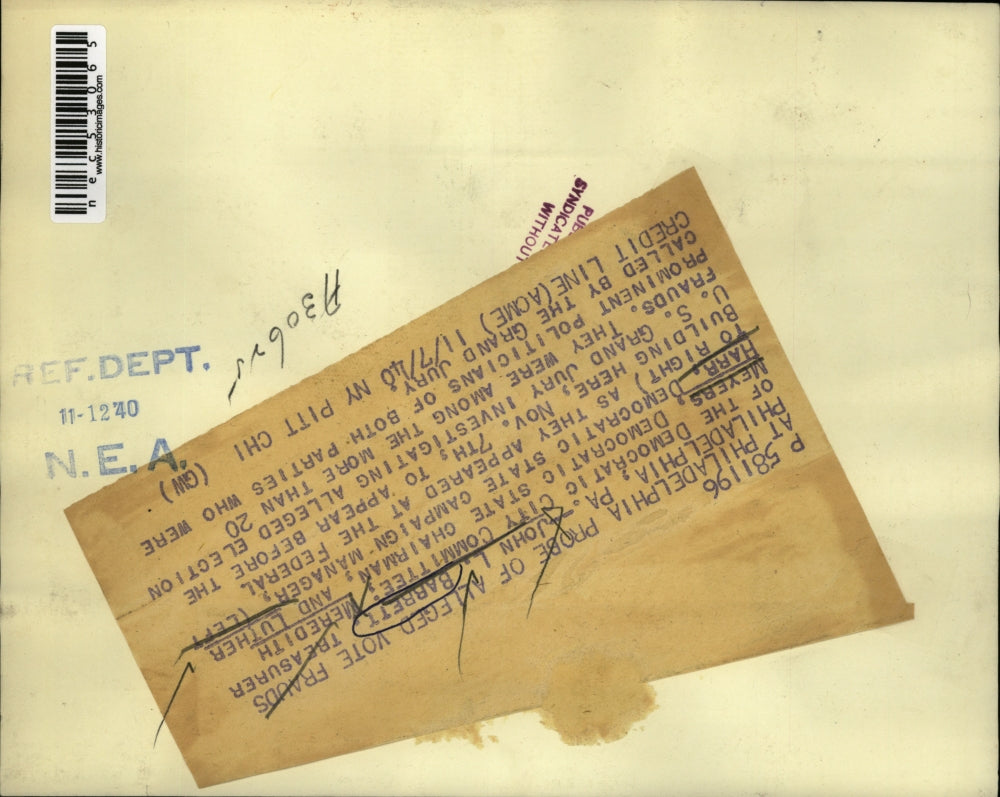 necS53065
www.historicimages.com
PUB
SYNDICATE
WITHOUT
A306rs
REF.DEPT.
11-12'40
N.E.A.
P 581196
PROBE OF ALLEGED VOTE FRAUDS
AT PHILADELPHIA PA.
PHILADELPHIA, PA. JOHN L. BARRETT, TREASURER
OF THE DEMOCRATIC CITY COMMITTEE; MEREDITH
MEYERS DEMOCRATIC STATE CHAIRMAN, AND LUTHER
HARR, DEMOCRATIC STATE CAMPAIGN MANAGER, (LEFT
TO RIGHT) AS THEY APPEARED AT THE FEDERAL
BUILDING HERE, NOV. 7TH, TO APPEAR BEFORE THE
U. S. GRAND JURY INVESTIGATING ALLEGED ELECTION
FRAUDS. THEY WERE AMONG THE MORE THAN 20
PROMINENT POLITICIANS OF BOTH PARTIES WHO WERE
CALLED BY THE GRAND JURY.
CREDIT LINE (ACME) 11/7/40 NY PITT CHI (GW)